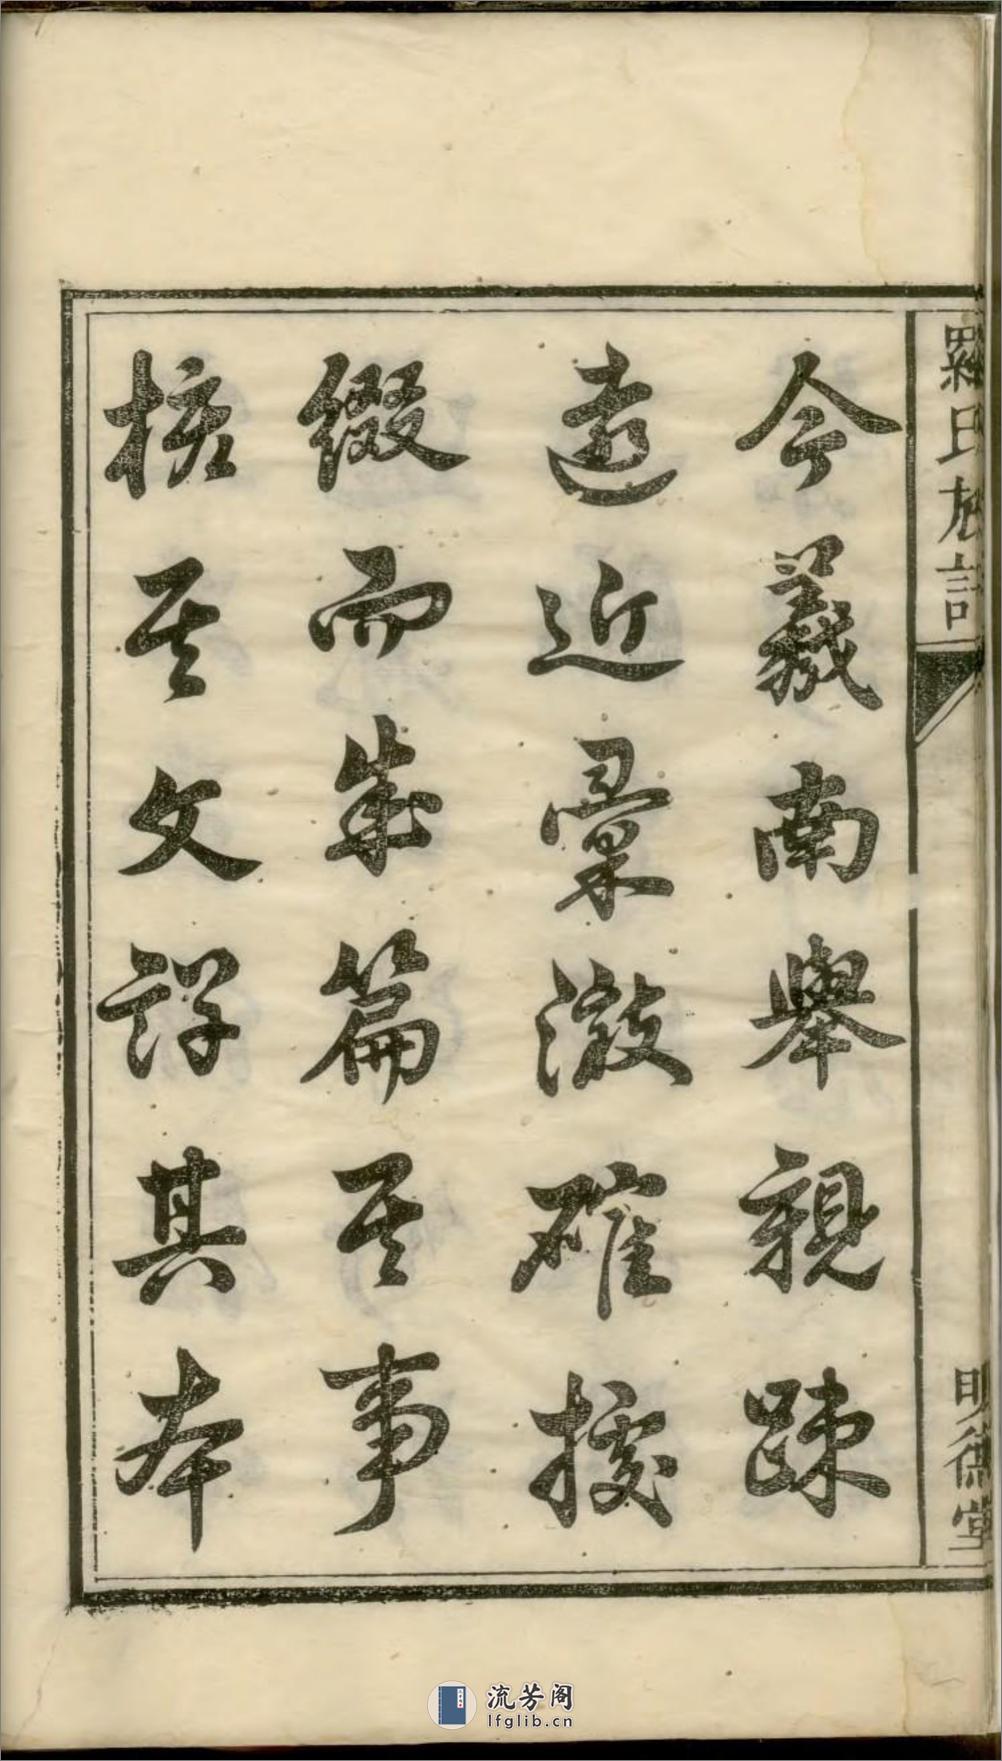 今羲南舉親疎
遠近彙潡確援
綴而成篇其事
核其文詳其本
羅氏族譜
明德堂
流芳阁
lfglib.cn